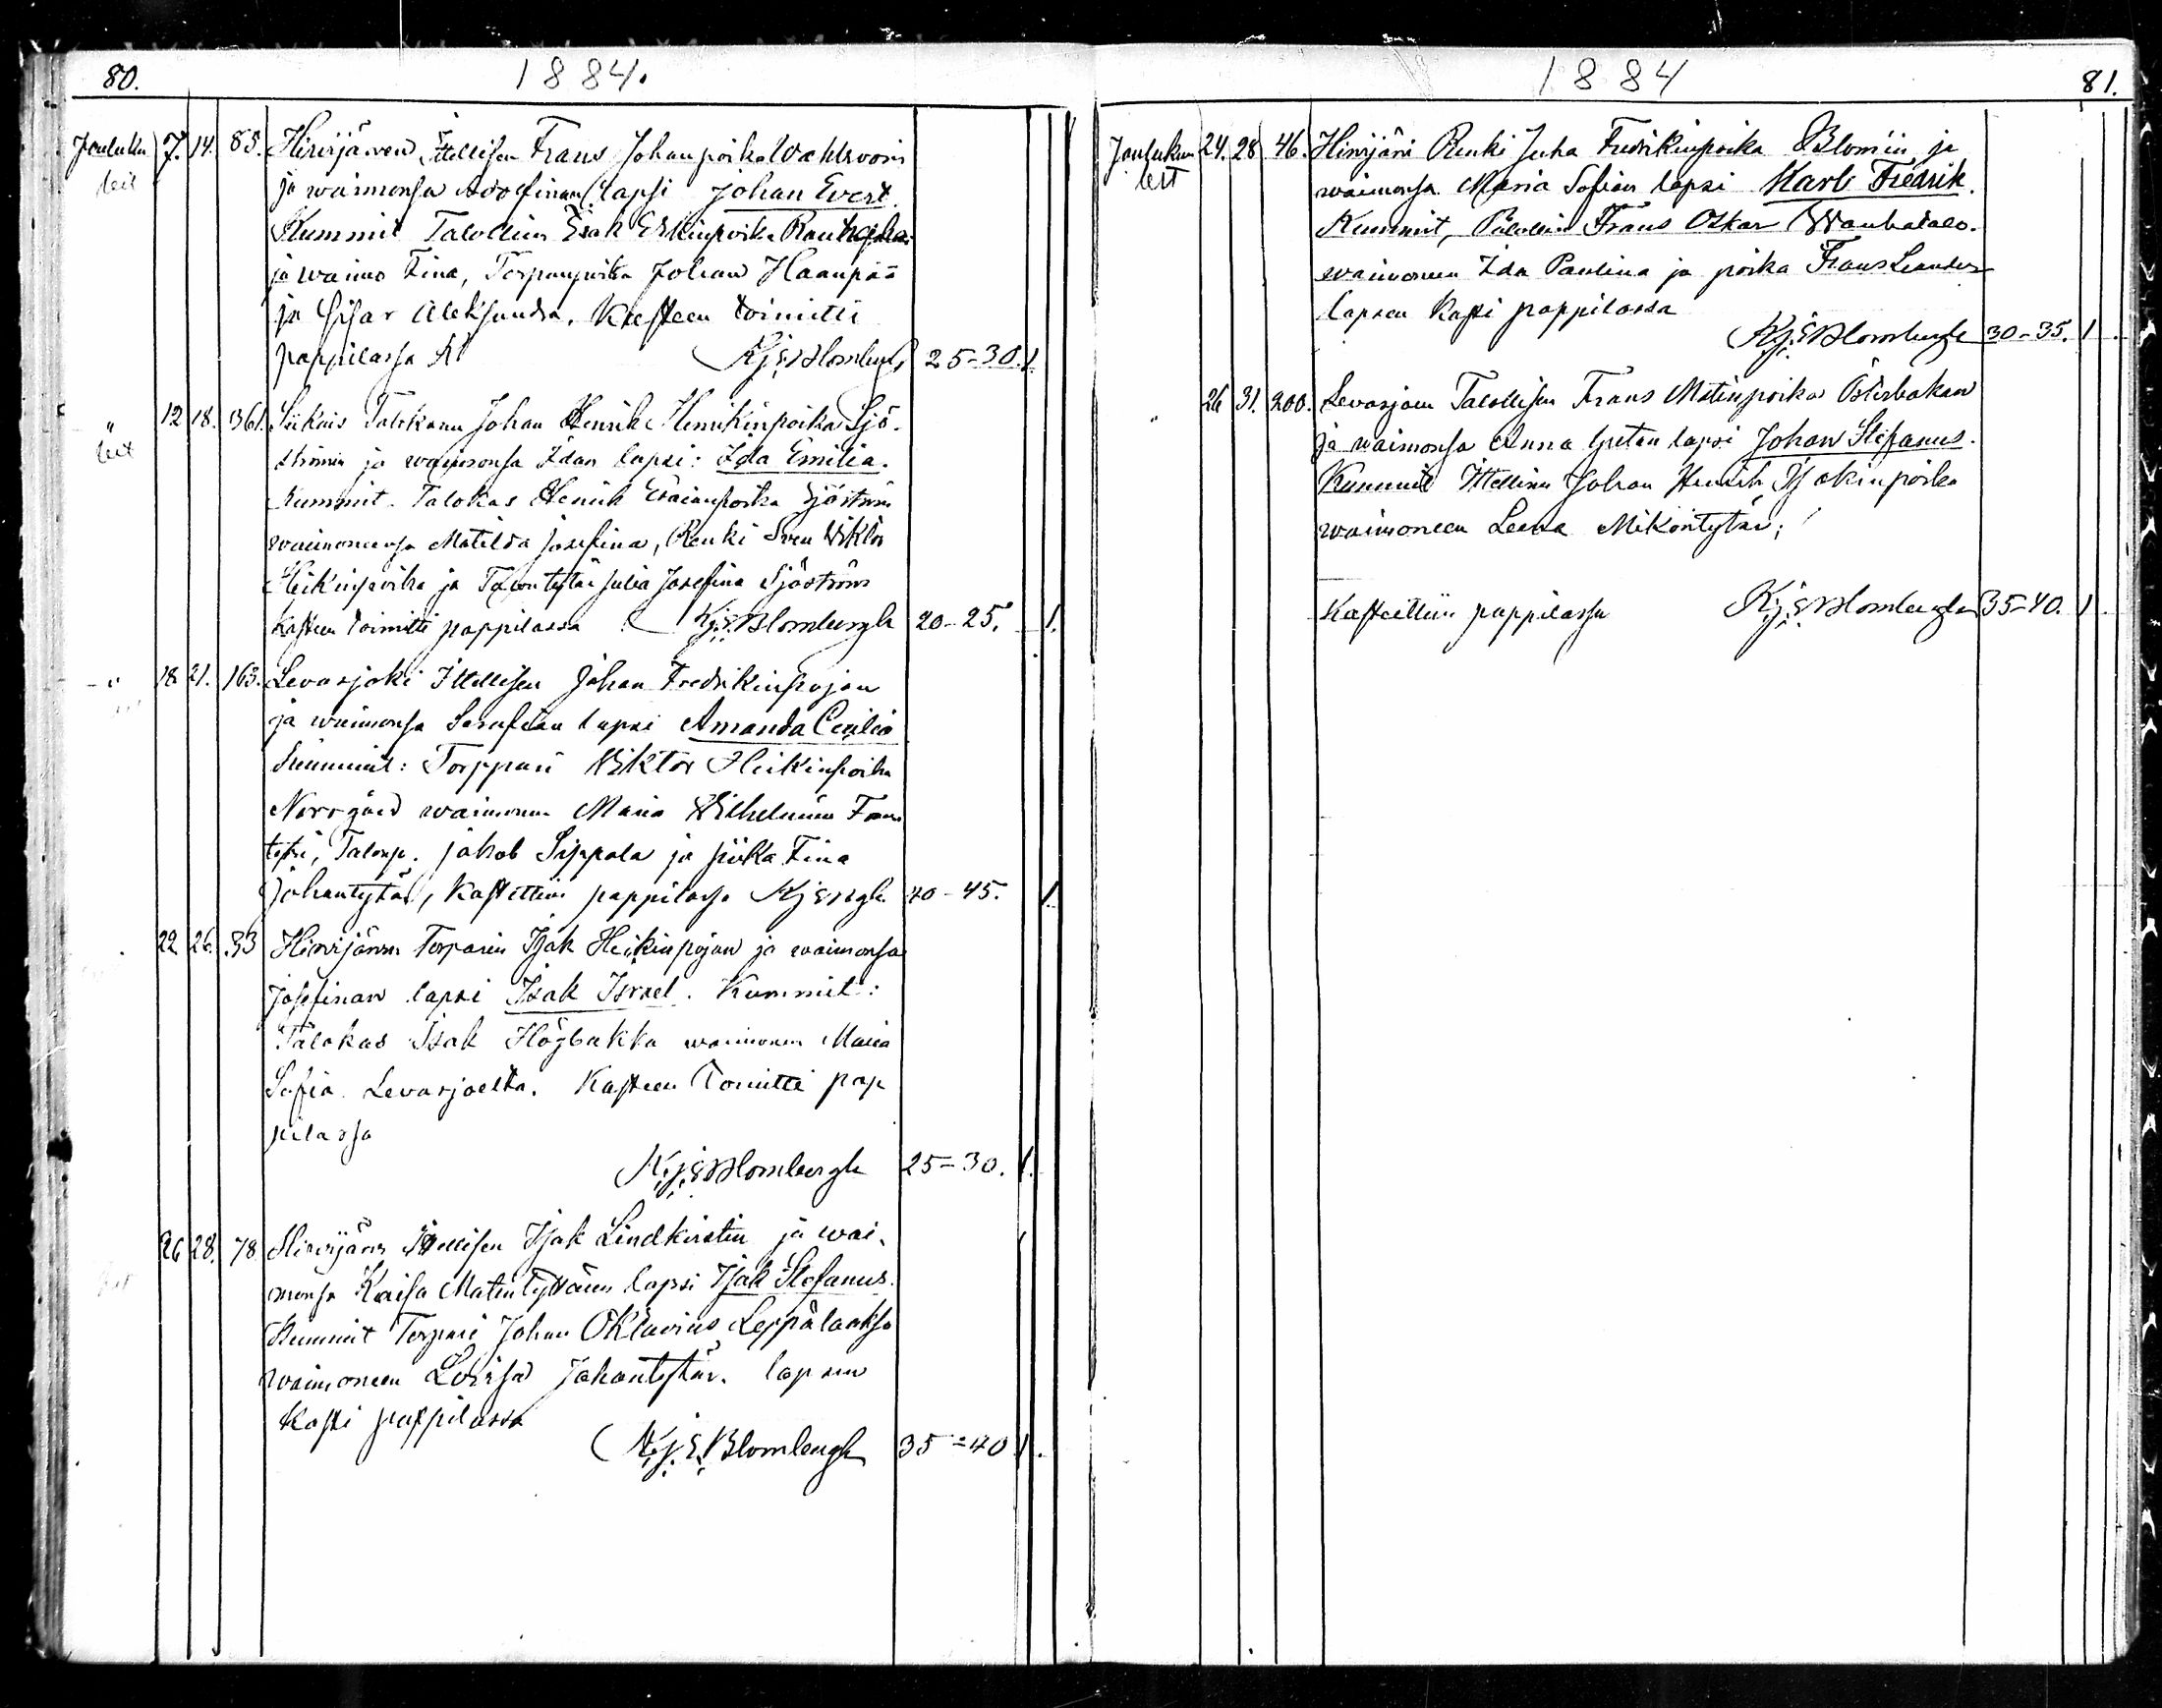 80.
1884.
Jouluku 7. 14. 85. Hirvijärven Ittellisen Frans Johanpoika Wahlrooin
leit ja waimonsa Adolfinan lapsi Johan Evert.
Kummit Talollisen Esak Erkinpoika Rauhaala
ja waimo Fina, Torpanpoika Johan Haanpää
ja Sisar Aleksandra. Kasteen toimitti
pappilassa Kj: E: Blombergh 25-30. 1.
" 12 18. 361. Siikais Talokann Johan Henrik Henrikinpoika Sjö-
leit strömin ja waimonsa Idan lapsi: Ida Emilia.
Kummit. Talokas Henrik Esaianpoika Sjöström
waimoneensa Matilda Josefina, Renki Sven Viktor
Heikinpoika ja Talontytär Julia Josefina Sjöström
Kasteen toimitti pappilassa Kj: E: Blombergh 20-25. 1.
" 18 21. 163. Levasjoki Ittellisen Johan Fredrikinpojan
ja waimonsa Serafiian lapsi Amanda Cecilia
Kummit: Torppari Viktor Heikinpoika
Norrgård waimonen Maria Wilhelmina Frans
, Talonp. Jakob Sippola ja piika Fina
Johantytär, Kastettiin pappilassa Kj E Blgh 40-45. 1.
22 26. 33 Hirvijärven Torparin Isak Heikinpojan ja waimonsa
Josefinan lapsi Isak Israel. Kummit:
Talokas Isak Högbakka waimonen Maria
Sofia Levasjoelta. Kasteen Toimitti pap
pilassa
Kj: E: Blombergh 25-30. 1.
26 28. 78 Hirvijärvi Ittellisen Isak Lindkvistin ja wai-
monsa Kaisa Matintyttären lapsi Isak Stefanus.
Kummit Torpari Johan Oktavius Leppälaakso
waimoneen Lovisa Johantytär. lapsen
Kasti pappilassa
Kj: E: Blombergh 35-40 1.
1884
81.
Joulukun 24. 28 46. Hirvijärvi Renki Juha Fredrikinpoika Blomin ja
leit waimonsa Maria Sofian lapsi Karl Fredrik.
Kummit, Talollisen Frans Oskar Wanhatalo.
waimoneen Ida Paulina ja poika Frans Leander
lapsen Kasti pappilassa
Kj: E Blombergh 30-35. 1.
" 26 31. 200. Levasjoen Talollisen Frans Matinpoika Österbakan
ja waimonsa Anna Gretan lapsi Johan Stefanus.
Kummit Ittellinen Johan Henrik Isakinpoika
waimoneen Leena Mikontytär;
Kastettiin pappilassa Kj: E: Blombergh 35-40. 1.